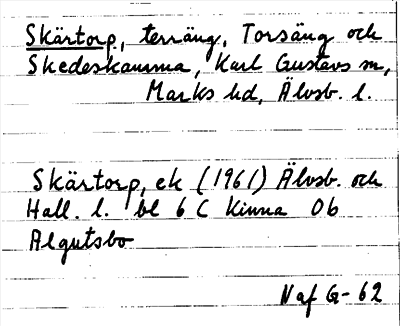 Skärtorp, terräng, Torsäng och
Skedeskamma, Karl Gustavs sn,
Marks hd, Älvsb. l.
Skärtorp, ek (1961) Älvsb. och
Hall. l. bl 6 C Kinna 0b
Algutsbo
Naf G-62